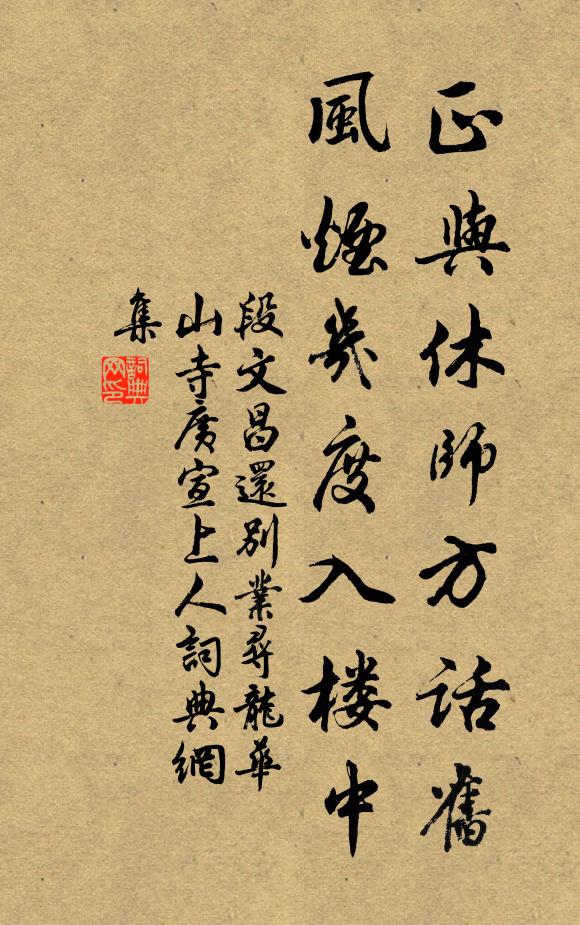 正與休師方話舊
風煙幾度入楼中
段文昌還別業尋龍華
山寺廣宣上人詞典網
集
詞典
网印